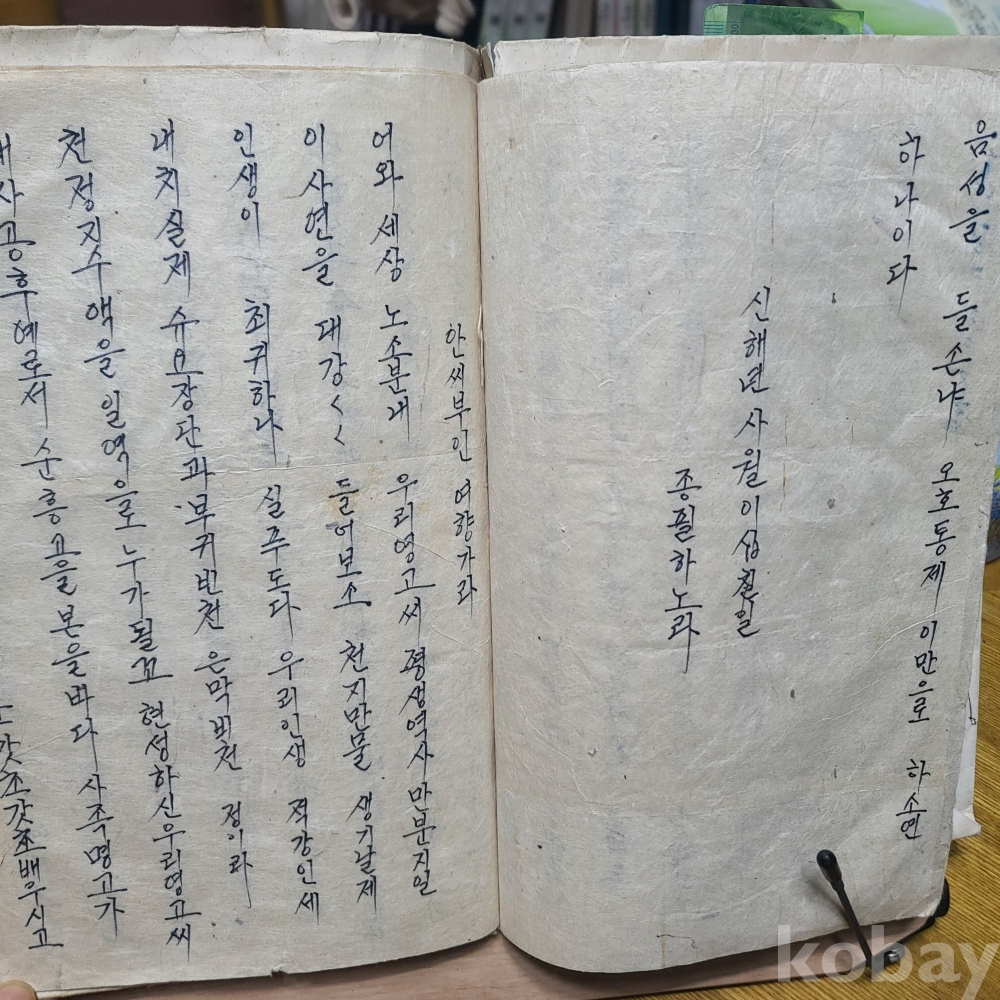 음성을 들손냐 오호통제 이만으로 하소연
하나이다
신해년 사월 이십칠일
종필하노라
안씨부인 여향가라
어와 세상 노소분내 우리영고씨 평생역사 만분지일
이사연을 대강〱 들어보소 천지만물 생기날제
인생이 최귀하나 실푸도다 우리인생 적강인세
내치실제 슈요장단과 부귀빈천은 막비천정이라
천정지수액을 일역으로 누가될꼬 현성하신 우리영고씨
공후예로서 순흥고을 본을바다 사족명고가
배우시고
kobay